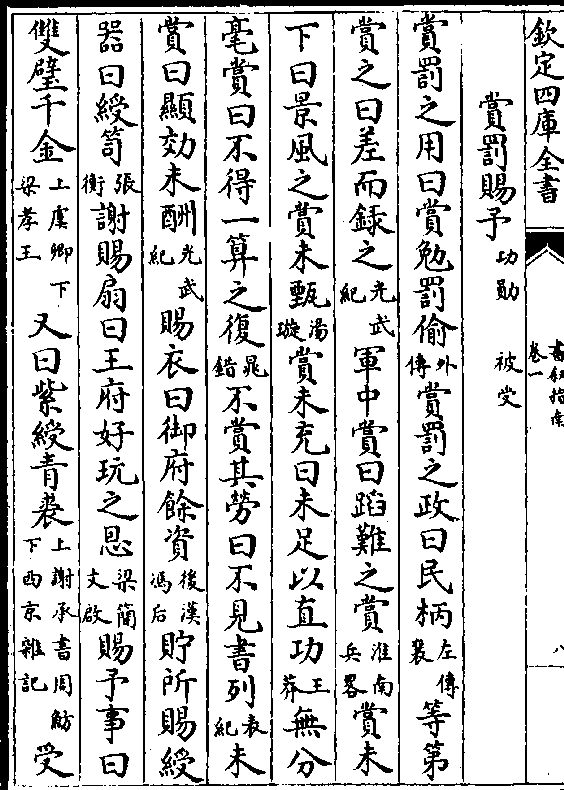 欽定四庫全書
書叙指南
卷一
八
賞罰賜予功勛 被受
賞罰之用曰賞勉罰偷外傳賞罰之政曰民柄左傳襄等第
賞之曰差而録之光武紀軍中賞曰蹈難之賞淮南兵畧賞未
下曰景風之賞未甄湯璇賞未充曰未足以直功王莽無分
毫賞曰不得一算之復晁錯不賞其勞曰不見書列表紀未
賞曰顯効未酬光武紀賜衣曰御府餘資後漢馮后貯所賜綬
器曰綬笥張衡謝賜扇曰王府好玩之恩梁簡文啟賜予事曰
雙璧千金上虞卿下梁孝王又曰紫綬青裘上謝承書周魴下西京雜記受